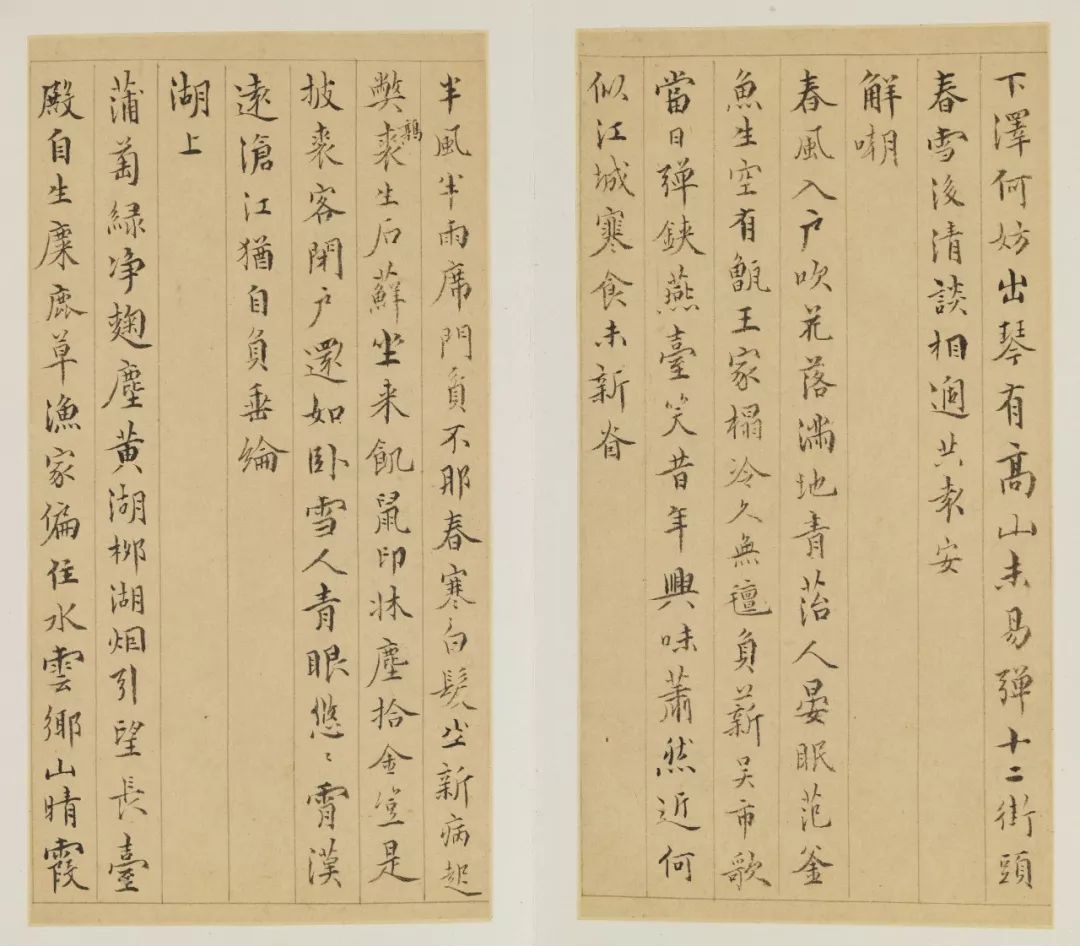 下澤何妨出琴有高山未易彈十二街頭
春雪後清談相過共求安
解嘲
春風入户吹花落滿地青苔人晏眠范釜
魚生空有甑王家榻冷久無氊負薪吴市歌
當日彈鋏燕臺笑昔年興味蕭然近何
似江城寒食未新
半風半雨席門貧不那春寒白髮新病起
弊裘鶉生后蘇坐来飢鼠印牀塵拾金豈是
披裘客閉户還如卧雪人青眼悠〻霄漢
遠滄江猶自負垂綸
湖上
蒲萄緑净麹塵黄湖柳湖烟引望長臺
殿自生麋鹿草漁家偏住水雲鄉山晴霞